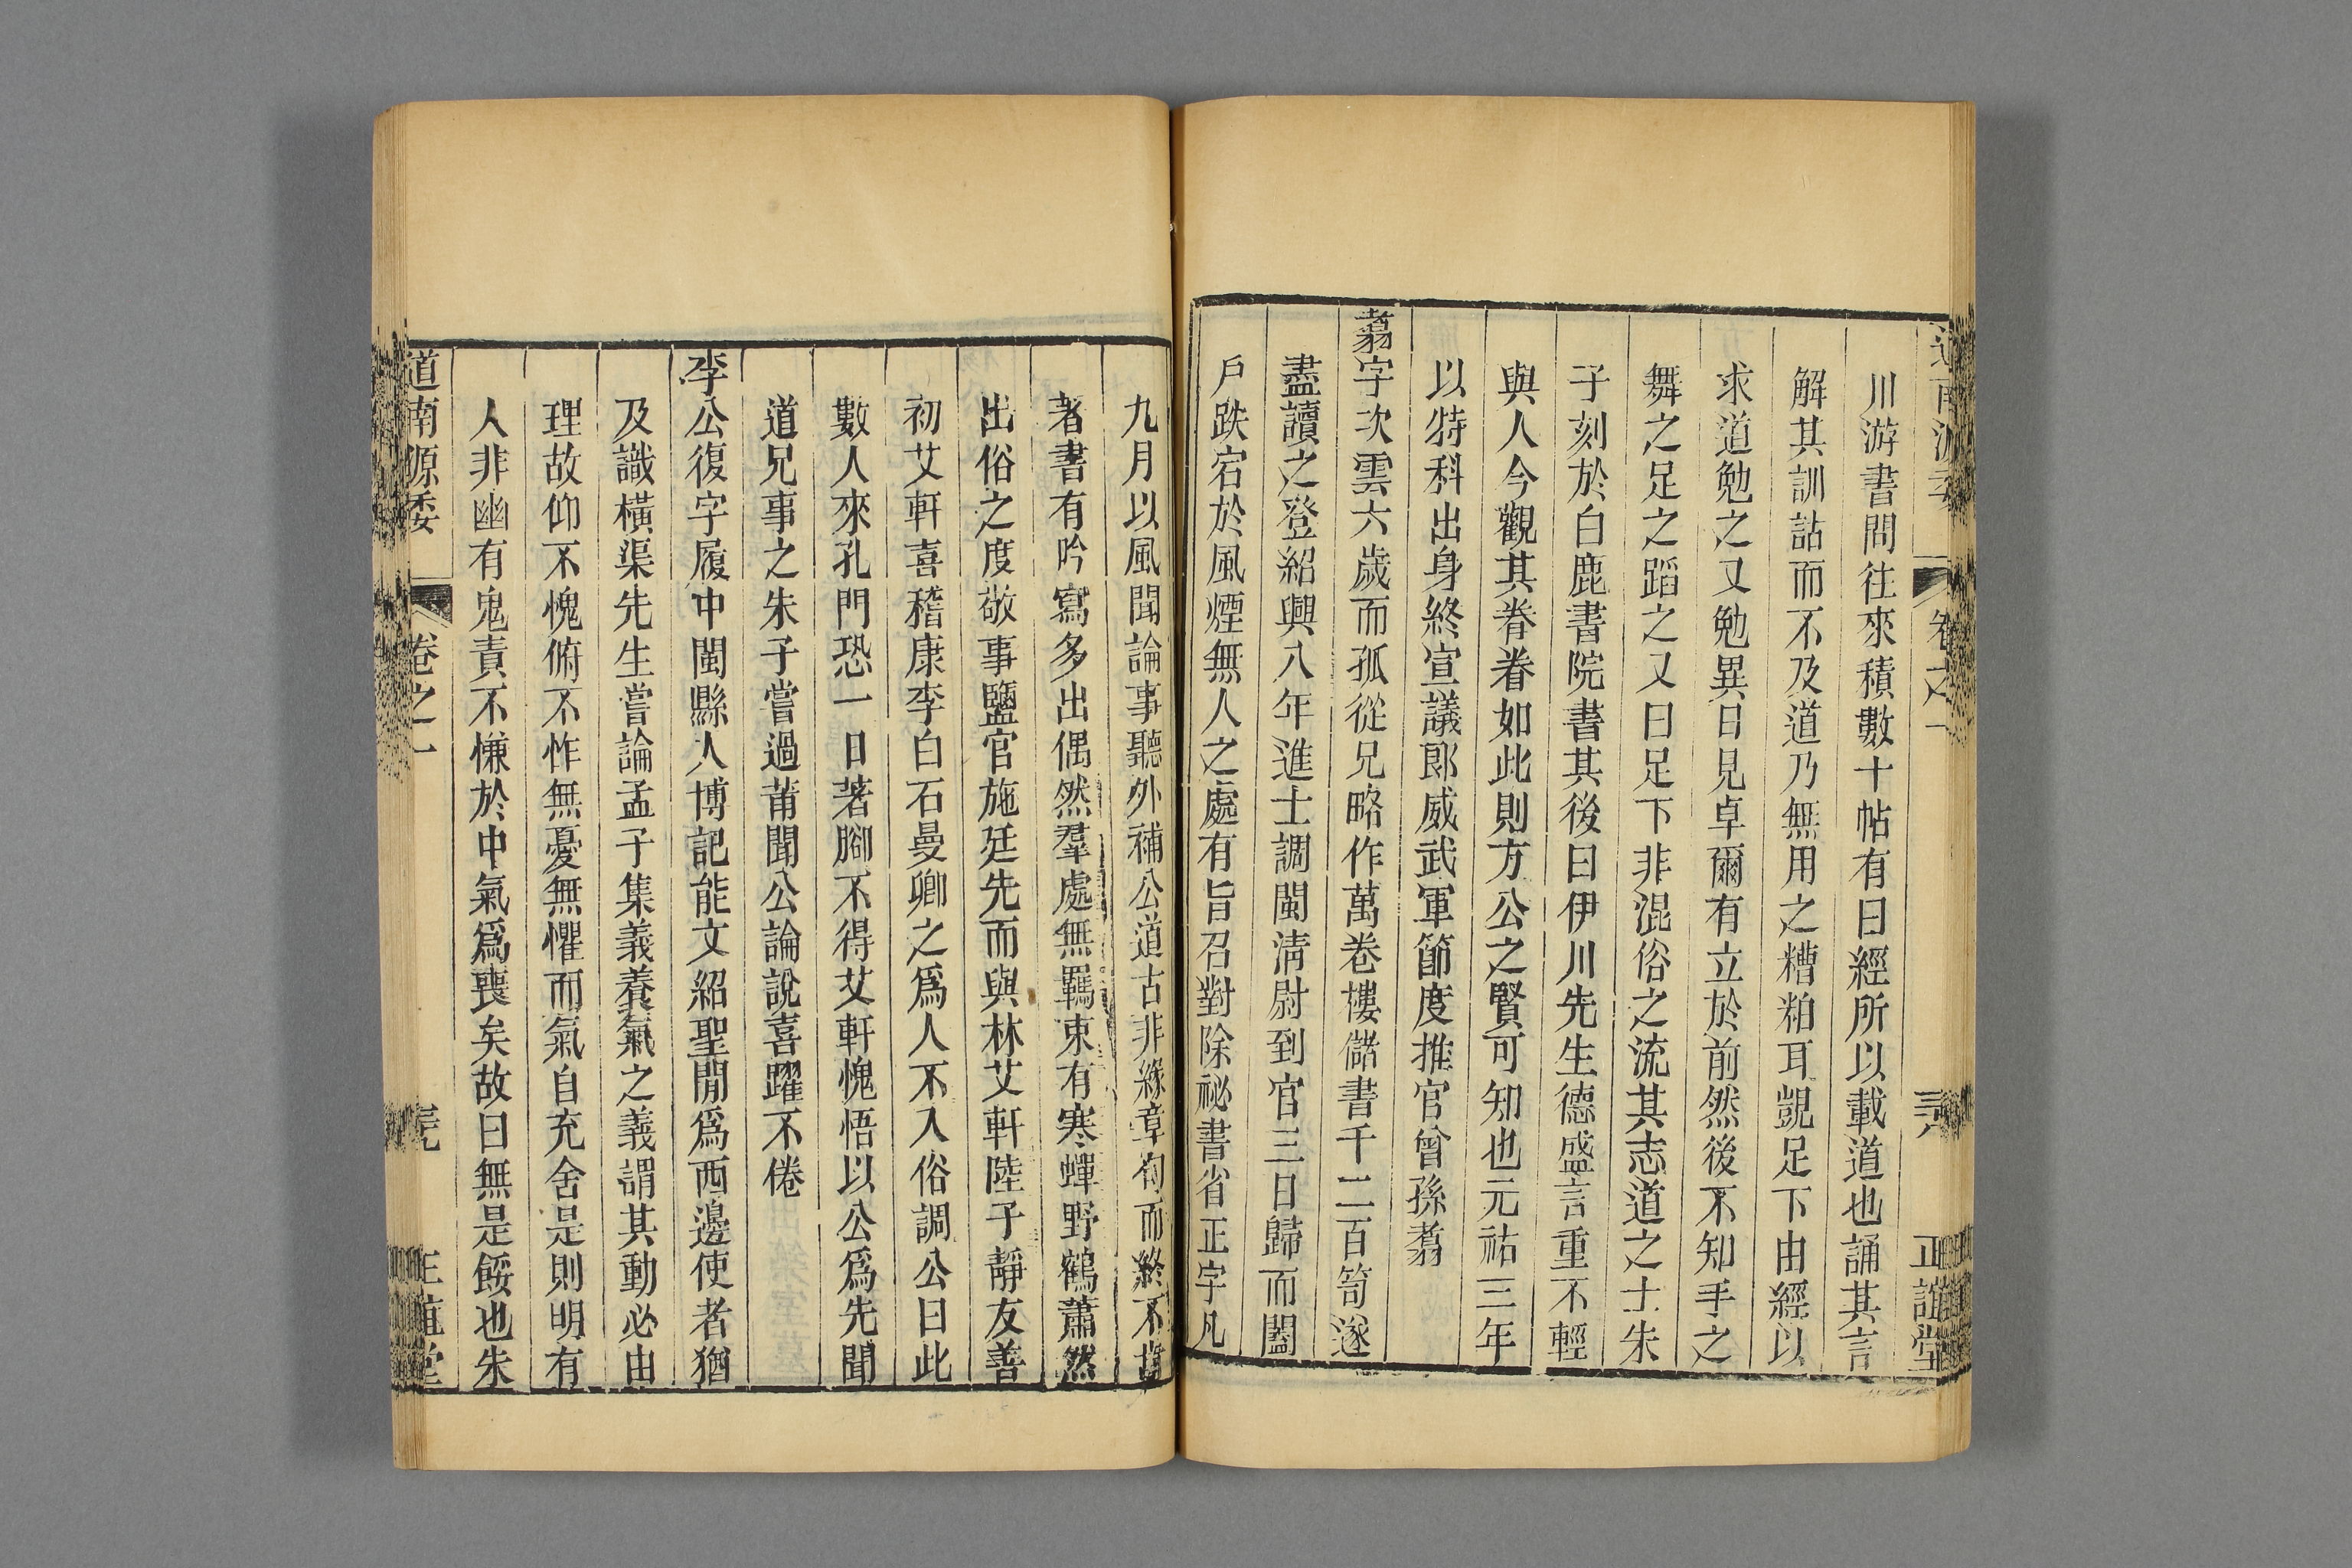 道南源委 卷之一 三六 正誼堂
川游書問往來積數十帖有曰經所以載道也誦其言
解其訓詁而不及道乃無用之糟粕耳覬足下由經以
求道勉之又勉異日見卓爾有立於前然後不知手之
舞之足之蹈之又曰足下非混俗之流其志道之士朱
子刻於白鹿書院書其後曰伊川先生德盛言重不輕
與人今觀其眷眷如此則方公之賢可知也元祐三年
以特科出身終宣議郎威武軍節度推官曾孫翥
翥字次雲六歲而孤從兄略作萬卷樓儲書千二百笥遂
盡讀之登紹興八年進士調閩清尉到官三日歸而闔
戶跌宕於風煙無人之處有旨召對除祕書省正字凡
九月以風聞論事聽外補公道古非緣章句而終不
著書有吟寫多出偶然羣處無羈束有寒蟬野鶴蕭然
出俗之度敬事鹽官施廷先而與林艾軒陸子靜友善
初艾軒喜稽康李白石曼卿之為人不入俗調公曰此
數人來孔門恐一日著腳不得艾軒愧悟以公為先聞
道兄事之朱子嘗過莆聞公論說喜躍不倦
李公復字履中閩縣人博記能文紹聖間為西邊使者猶
及識橫渠先生嘗論孟子集義養氣之義謂其動必由
理故仰不愧俯不怍無憂無懼而氣自充舍是則明有
人非幽有鬼責不慊於中氣為喪矣故曰無是餒也朱
道南源委 卷之一 正誼堂